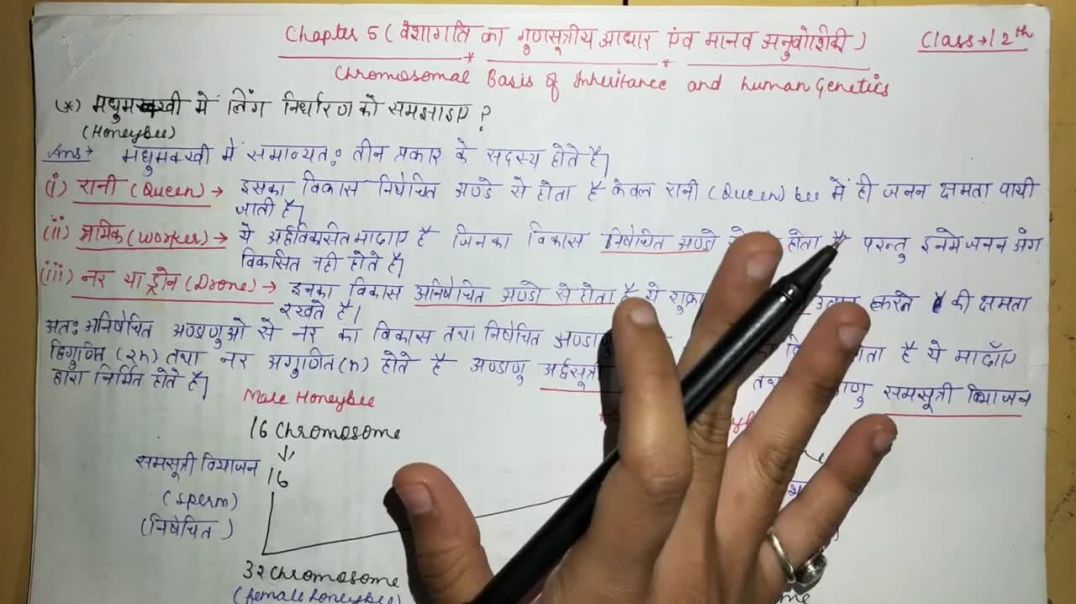 Chapter 5 (वंशागति का गुणसूत्रीय आधार एंव मानव अनुवांशिकी)
Class → 12th
Chromosomal Basis of Inheritance and human Genetics
(*) मधुमक्खी में लिंग निर्धारण को समझाइए ?
(Honeybee)
Ans → मधुमक्खी में समान्यतः तीन प्रकार के सदस्य होते है।
(i) रानी (Queen) → इसका विकास निषेचित अण्डे से होता है केवल रानी (Queen) bee में ही जनन क्षमता पायी
जाती है।
(ii) श्रमिक (Worker) → ये अर्द्धविकसित मादाए है जिनका विकास निषेचित अण्डो से होता है परन्तु इनमे जनन अंग
विकसित नही होते है।
(iii) नर या ड्रोन (Drone) → इनका विकास अनिषेचित अण्डो से होता है ये शुक्रा करने की क्षमता
रखते है।
अतः अनिषेचित अण्डाणुओ से नर का विकास तथा निषेचित अण्डा है ये मादाँए
द्विगुणित (2n) तथा नर अगुणित (n) होते है अण्डाणु अर्द्धसूत्री समसूत्री विभाजन
द्वारा निर्मित होते है।
Male Honeybee
16 Chromosome
समसूत्री विभाजन 16
(Sperm)
(निषेचित)
32 Chromosome
(female honeybee)